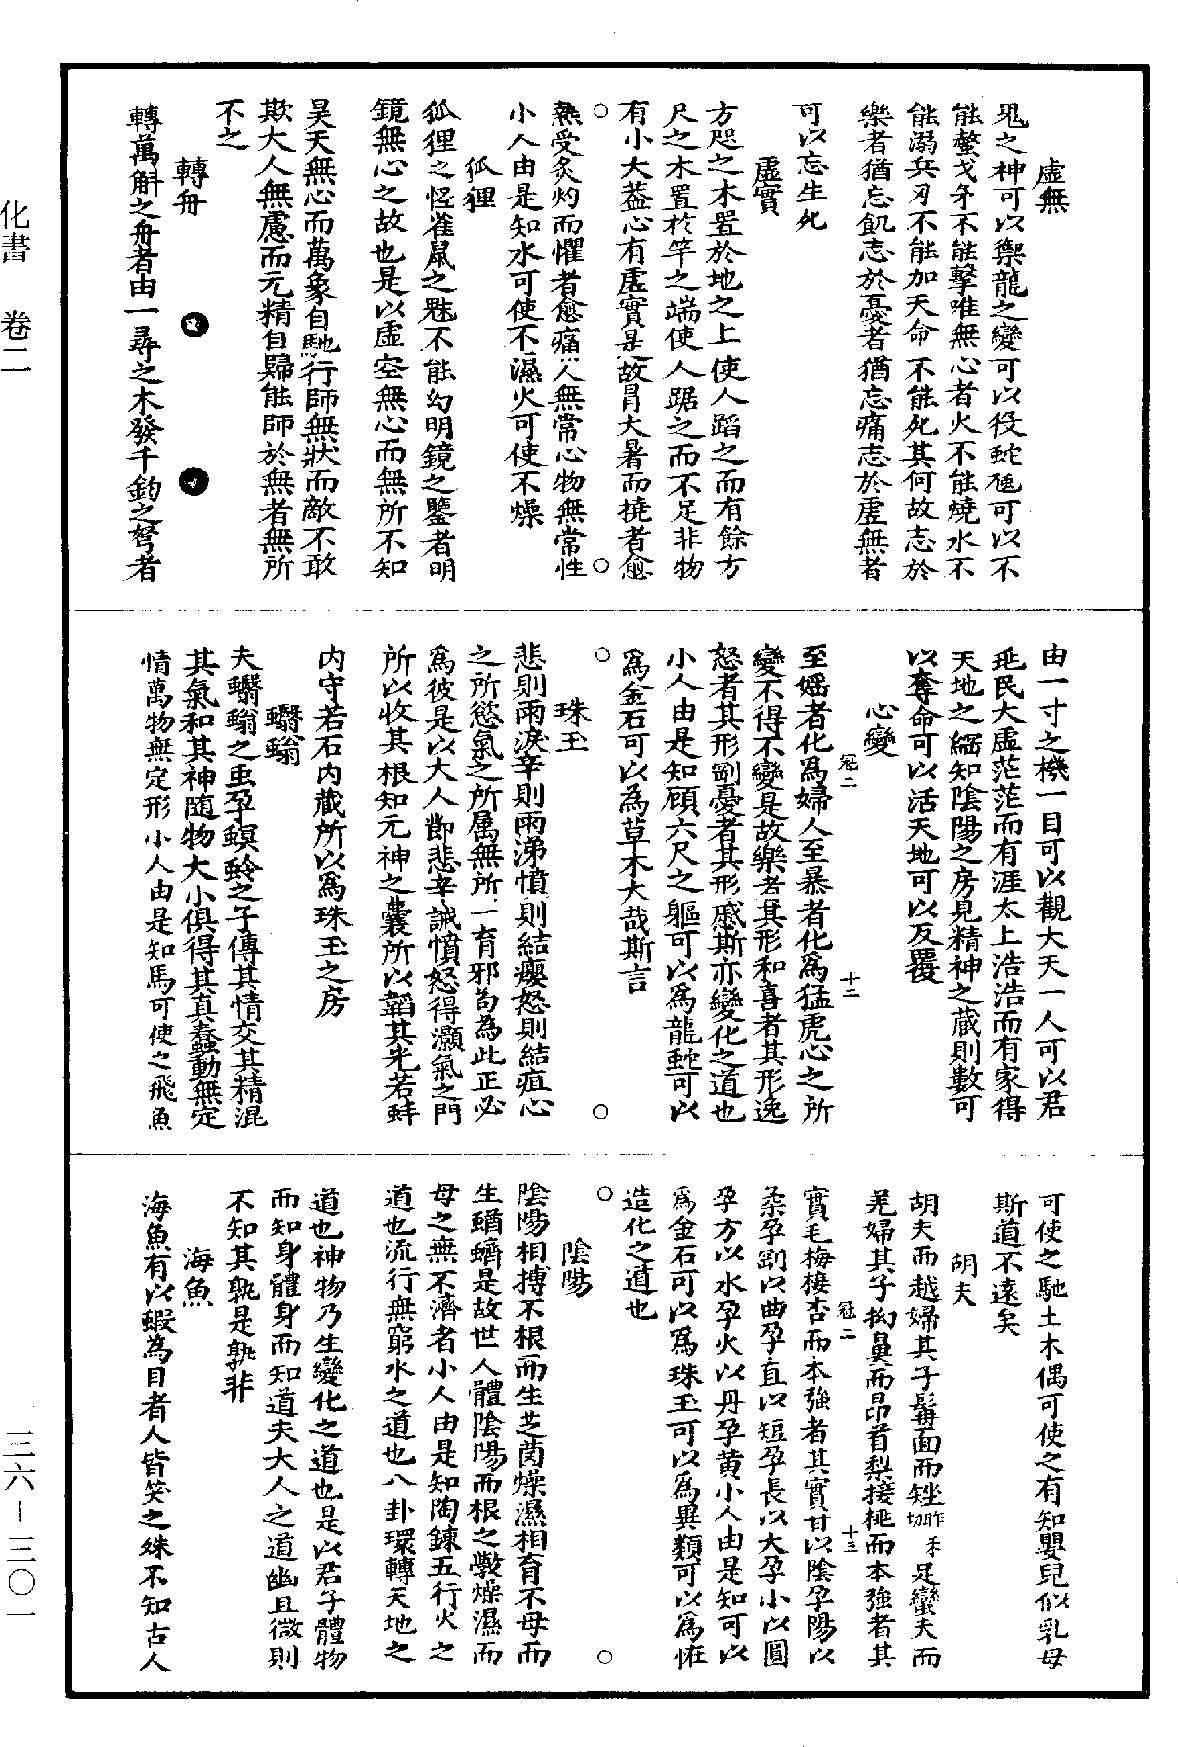 化書　卷二
三六－三〇一
虛無
鬼之神可以禦龍之變可以役蛇虺可以不
能螫戈矛不能擊唯無心者火不能燒水不
能溺兵刃不能加天命不能死其何故志於
樂者猶忘飢志於憂者猶忘痛志於虛無者
可以忘生死
虛實
方咫之木置於地之上使人蹈之而有餘方
尺之木置於竿之端使人踞之而不足非物
有小大蓋心有虛實是故冒大暑而撓者愈
熱受炙灼而懼者愈痛人無常心物無常性
小人由是知水可使不濕火可使不燥
狐狸
狐狸之怪雀鼠之魅不能幻明鏡之鑒者明
鏡無心之故也是以虛空無心而無所不知
昊天無心而萬象自馳行師無狀而敵不敢
欺大人無慮而元精自歸能師於無者無所
不之
轉舟
轉萬斛之舟者由一尋之木發千鈞之弩者
由一寸之機一目可以觀大天一人可以君
兆民大虛茫茫而有涯太上浩浩而有家得
天地之綱知陰陽之房見精神之藏則數可
以奪命可以活天地可以反覆
心變
冠二　十二
至婬者化爲婦人至暴者化爲猛虎心之所
變不得不變是故樂者其形和喜者其形逸
怒者其形剛憂者其形慼斯亦變化之道也
小人由是知顧六尺之軀可以爲龍蛇可以
爲金石可以爲草木大哉斯言
珠玉
悲則雨淚辛則雨涕憤則結癭怒則結疽心
之所慾氣之所屬無所一育邪苟為此正必
為彼是以大人節悲辛誡憤怒得灝氣之門
所以收其根知元神之囊所以韜其光若蚌
内守若石内藏所以爲珠玉之房
蠮螉
夫蠮螉之虫孕螟蛉之子傳其情交其精混
其氣和其神随物大小俱得其真蠢動無定
情萬物無定形小人由是知馬可使之飛魚
可使之馳土木偶可使之有知嬰兒似乳母
斯道不遠矣
胡夫
胡夫而越婦其子髯面而矬昨禾切足蠻夫而
羌婦其子拗鼻而昂首梨接桃而本強者其
冠二　十三
實毛梅接杏而本強者其實甘以陰孕陽以
柔孕剛以曲孕直以短孕長以大孕小以圓
孕方以水孕火以丹孕黃小人由是知可以
爲金石可以爲珠玉可以爲異類可以爲怪
造化之道也
陰陽
陰陽相搏不根而生芝菌燥濕相育不母而
生蝤蠐是故世人體陰陽而根之斆燥濕而
母之無不濟者小人由是知陶鍊五行火之
道也流行無窮水之道也八卦環轉天地之
道也神物乃生變化之道也是以君子體物
而知身體身而知道夫大人之道幽且微則
不知其孰是孰非
海魚
海魚有以蝦為目者人皆笑之殊不知古人